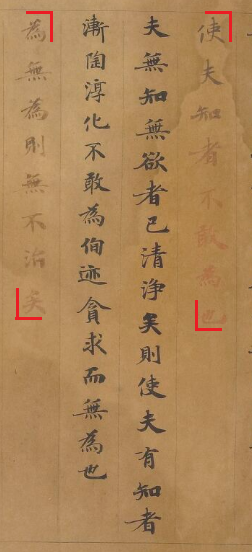 使夫知者不敢為也
夫無知無欲者已清淨矣則使夫有知者
漸陶淳化不敢為徇迹貪求而無為也
為無為則無不治矣